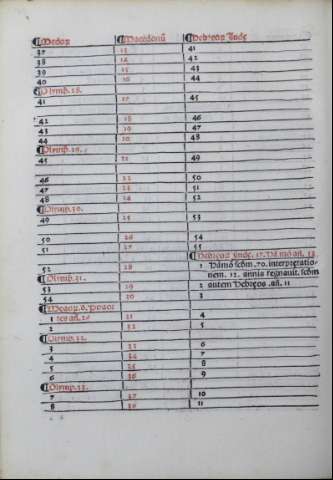 ¶Medoꝝ ¶Macedonū ¶Hebreoꝝ Iude
37 13 41
38 14 42
39 15 43
40 16 44
¶Olymp. 28.
41 17 45
42 18 46
43 19 47
44 20 48
¶Olimp. 29.
45 21 49
46 22 50
47 23 51
48 24 52
¶Olimp. 30.
49 25 53
50 26 54
51 27 55
¶Hebreoꝝ Iude. 17. añ. 12
52 28 1 scḋm .70. interpretatio-
¶Olimp. 31. nem. 12. annis regnauit. scḋm
53 29 2 autem Hebreos. añ. 11
54 30 3
¶Medoꝝ. 6.
1 añ. 31 4
2 32 5
¶Olimp. 32.
3 33 6
4 34 7
5 35 8
6 36 9
¶Olimp. 33.
7 37 10
8 38 11